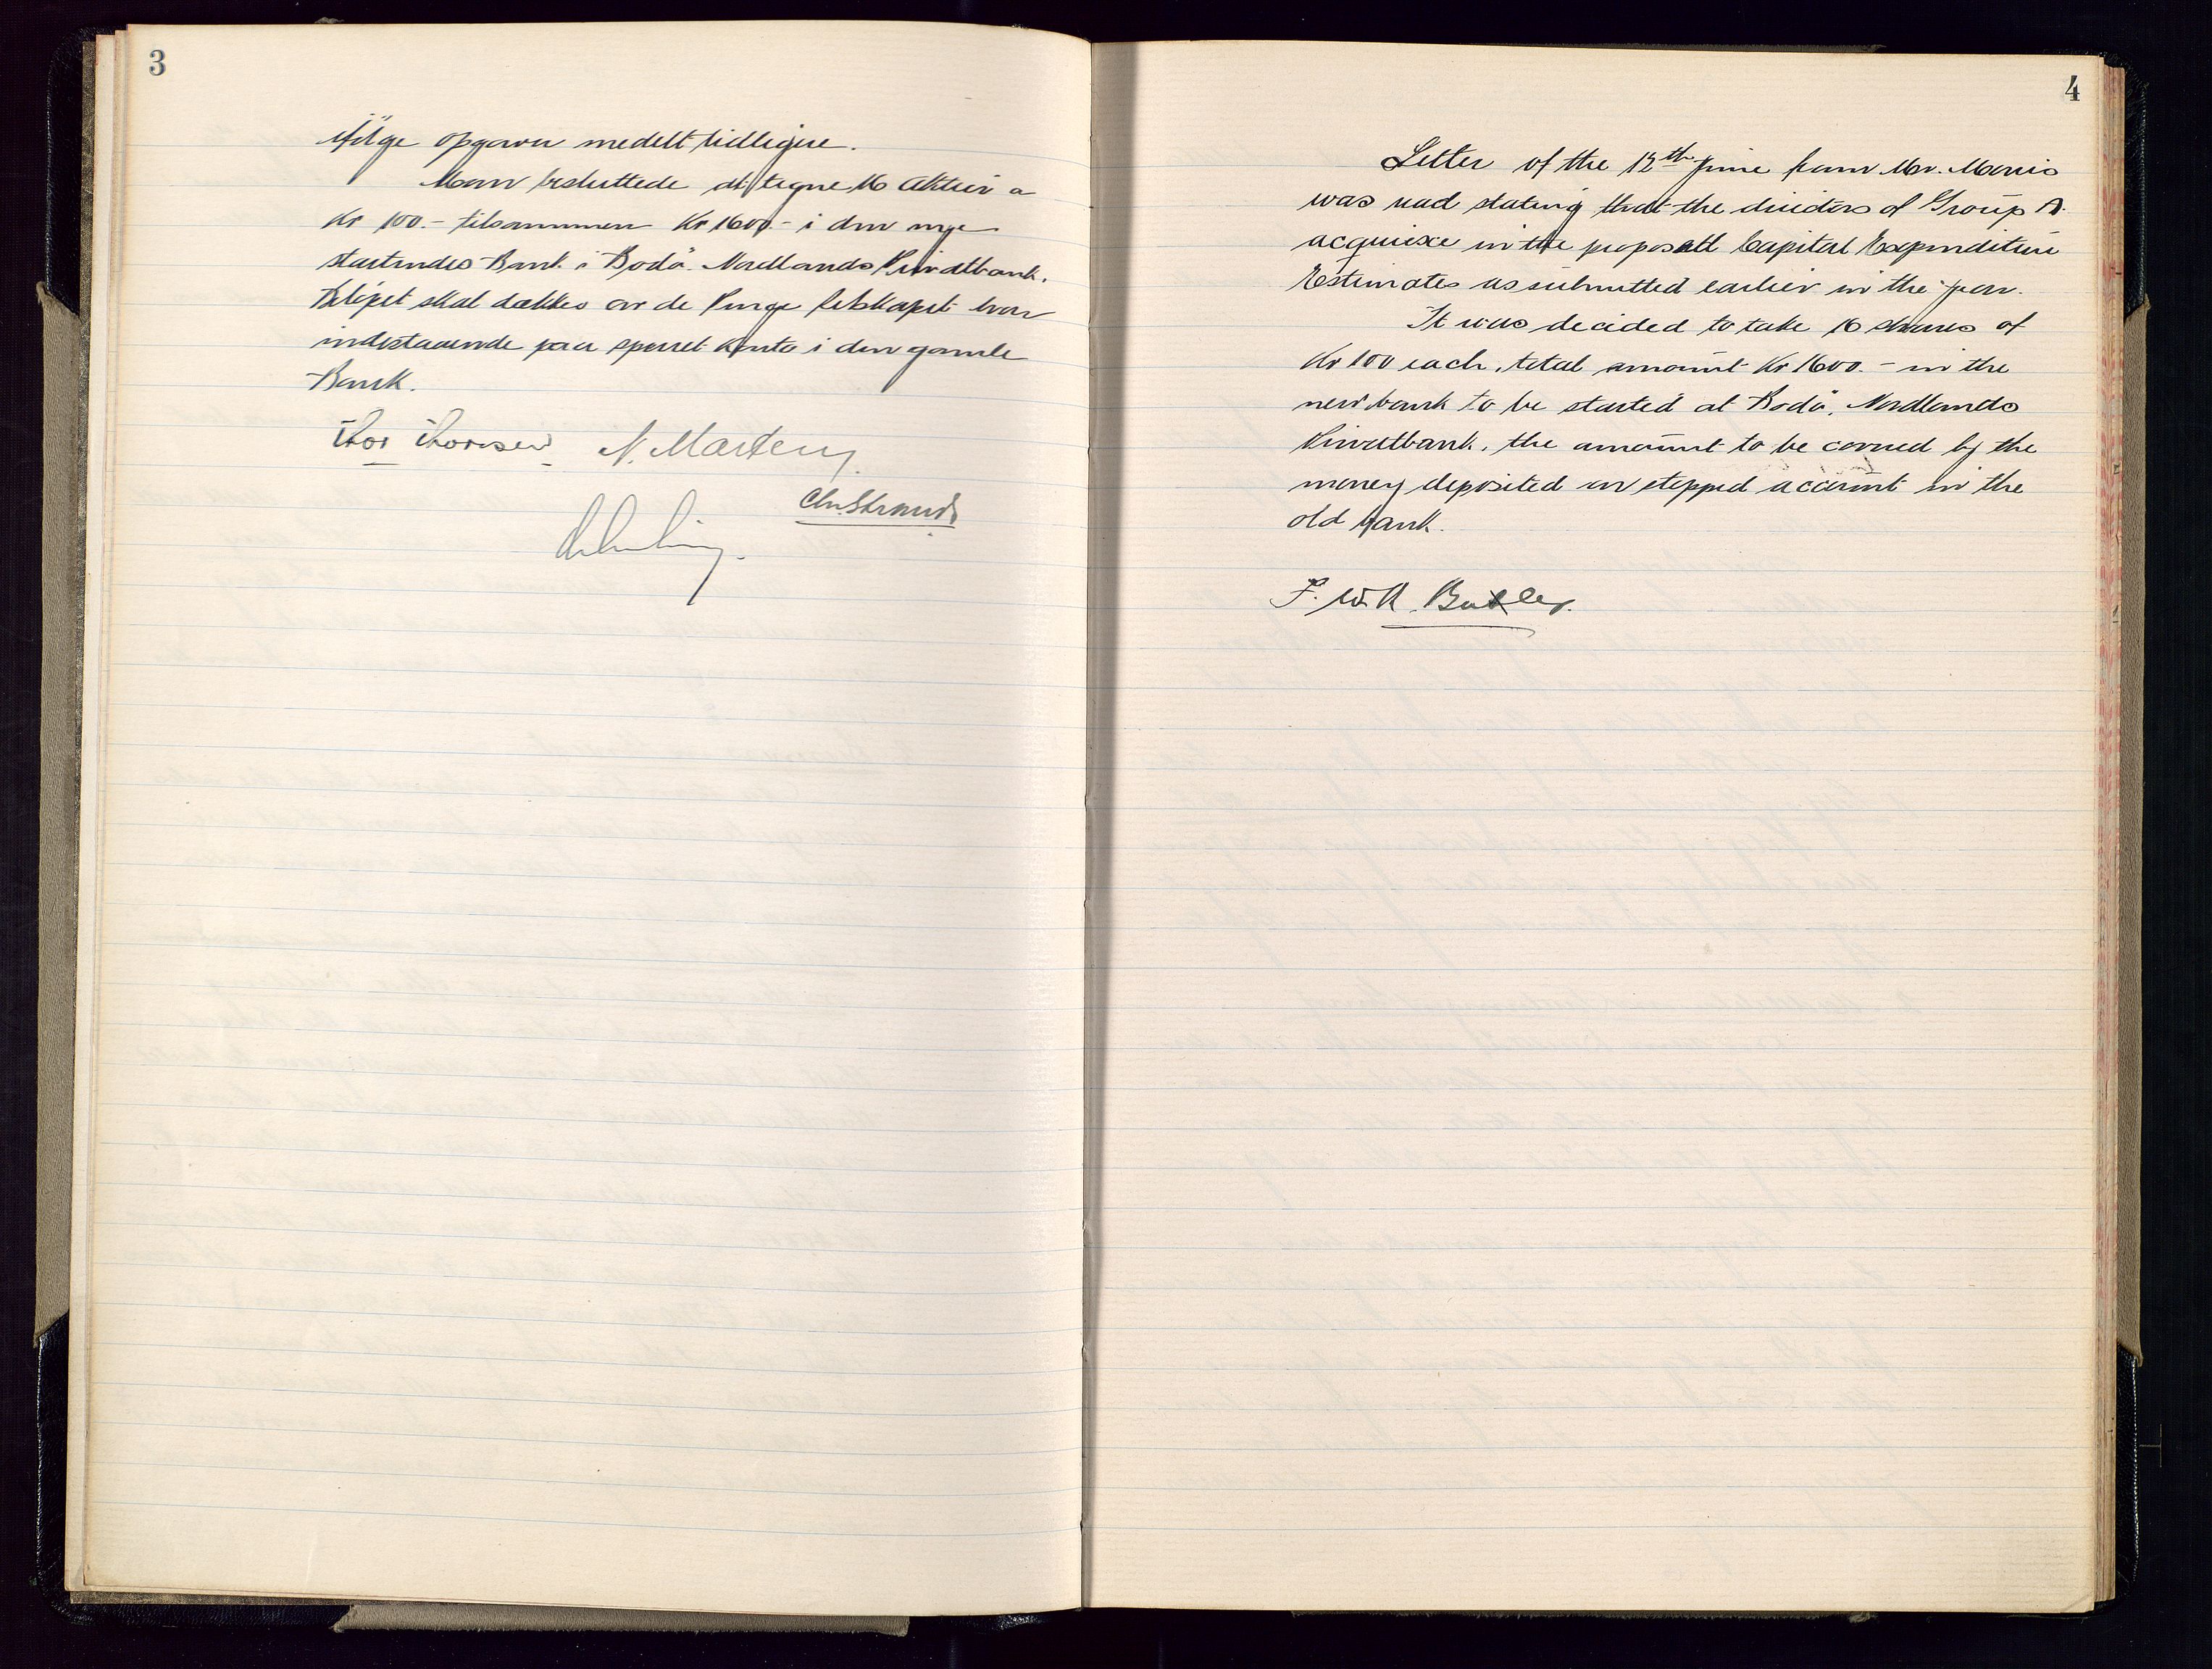 3
ifölge opgaver meddelt tidligere.
Man besluttede at tegne 16 Aktier a
Kr 100.- tilsammen Kr 1600.- i den nye
startendes Bank i Bodö. Nordlands Privatbank.
Belöpet skal dækkes av de Penge selskapet har
indestaaende paa sperret konto i den gamle
Bank.
Thor Thorsen N. Marteny
Chr. Strand
4
Letter of the 12th June from Mr. Morris
was read stating that the directors of Group A.
acquiesce in the proposed Capital Expenditure
Estimates as submitted earlier in the year.
It was decided to take 16 shares of
Kr 100 each, total amount Kr 1600.- in the
new bank to be started at Bodö, Nordlands
Privatbank, the amount to be covered by the
money deposited on stopped account in the
old bank.
F. W. R. Butler.